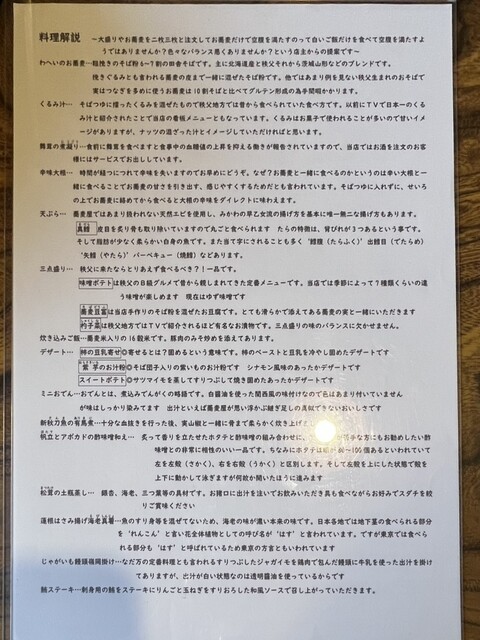 料理解説　～大盛りやお蕎麦を二枚三枚と注文してお蕎麦だけで空腹を満たすのって白いご飯だけを食べて空腹を満たすよ
うではありませんか？色々なバランス悪くありませんか？という店主からの提案です～
わへいのお蕎麦…粗挽きのそば粉6～7割の田舎そばです。主に北海道産と秩父それから茨城山形などのブレンドです。
挽きぐるみとも言われる蕎麦の皮まで一緒に混ぜたそば粉です。他ではあまり例を見ない秩父生まれのおそばで
実はつなぎを多めに使うお蕎麦は10割そばと比べてグルテン形成の為手間暇かかります。
くるみ汁…　そばつゆに擂ったくるみを混ぜたもので秩父地方では昔から食べられていた食べ方です。以前にTVで日本一のくる
み汁と紹介されたことで当店の看板メニューともなっています。くるみはお菓子で使われることが多いので甘いイメ
ージがありますが、ナッツの混ざった汁とイメージしていただければと思います。
舞茸の煮凝り…食前に舞茸を食べますと食事中の血糖値の上昇を抑える働きが報告されていますので、当店ではお酒を注文のお客
様にはサービスでお出ししています。
辛味大根…　時間が経つにつれて辛味を失いますのでお早めにどうぞ。なぜお蕎麦と一緒に食べるのかというのは辛い大根と一
緒に食べることでお蕎麦の甘さを引き出す、感じやすくするためだとも言われています。そばつゆに入れずに、せいろ
の上でお蕎麦に絡めてから食べると大根の辛味をダイレクトに味わえます。
天ぷら…　蕎麦屋ではあまり扱われない天然エビを使用し、みかわの早乙女流の揚げ方を基本に唯一無二な揚げ方もあります。
真鱈　皮目を炙り骨も取り除いていますので丸ごと食べられます　たらの特徴は、背びれが3つあるという事です。
そして脂肪が少なく柔らかい白身の魚です。また当て字にされることも多く“鱈腹（たらふく）”出鱈目（でたらめ）
‘矢鱈（やたら）’バーベキュー（焼鱈）などあります。
三点盛り…　秩父に来たならとりあえず食べるべき？！一品です。
味噌ポテトは秩父のB級グルメで昔から親しまれてきた定番メニューです。当店では季節によって7種類くらいの違
う味噌が楽しめます　現在はゆず味噌です
蕎麦豆富は当店手作りのそば粉を混ぜたお豆腐です。とても滑らかで添えてある蕎麦の実と一緒にいただきます
杓子菜は秩父地方ではTVで紹介されるほど有名なお漬物です。三点盛りの味のバランスに欠かせません。
炊き込みご飯…蕎麦米入りの16穀米です。豚肉のみそ炒めを添えてあります。
デザート…　柿の豆乳寄せ◎寄せるとは？固めるという意味です。柿のペーストと豆乳を冷やし固めたデザートです
紫芋のお汁粉◎そば団子入りの紫いものお汁粉です　シナモン風味のあったかデザートです
スイートポテト◎サツマイモを蒸してすりつぶして焼き固めたあったかデザートです
ミニおでん…おでんとは、煮込みでんがくの略語です。白醤油を使った関西風の味付けなので色はあまり付いていません
が味はしっかり染みてます　出汁といえば蕎麦屋が思い浮かぶ継ぎ足しの真似できないおいしさです
新秋刀魚の有馬煮…十分な血抜きを行った後、実山椒と一緒に骨まで柔らかく炊き上げ
帆立とアボカドの酢味噌和え…　炙って香りを立たせたホタテと酢味噌の組み合わせに、　手な方にもお勧めしたい酢
味噌との非常に相性のいい一品です。ちなみにホタテは　100個あるといわれていて
左を左殻（さかく）、右を右殻（うかく）と区別します。そして左殻を上にした状態で殻を
下に動かして泳ぎますが何故か開いたほうに進みます
松茸の土瓶蒸し…　銀杏、海老、三つ葉等の具材です。お猪口に出汁を注いでお飲みいただき具も食べながらお好みでスダチを絞
りご賞味ください
蓮根はさみ揚げ海老真薯…魚のすり身等を混ぜてないため、海老の味が濃い本来の味です。日本各地では地下茎の食べられる部分
を‘れんこん’と言い花全体植物としての呼び名が‘はす’と言われています。ですが東京では食べら
れる部分も‘はす’と呼ばれているため東京の方言ともいわれています
じゃがいも饅頭鶏岡掛け…なだ万の定番料理とも言われるすりつぶしたジャガイモを鶏肉で包んだ饅頭に牛乳を使った出汁を掛け
てありますが、出汁が白い状態なのは透明醤油を使っているからです
鮪ステーキ…刺身用の鮪をステーキにりんごと玉ねぎをすりおろした和風ソースで召し上がっていただきます。